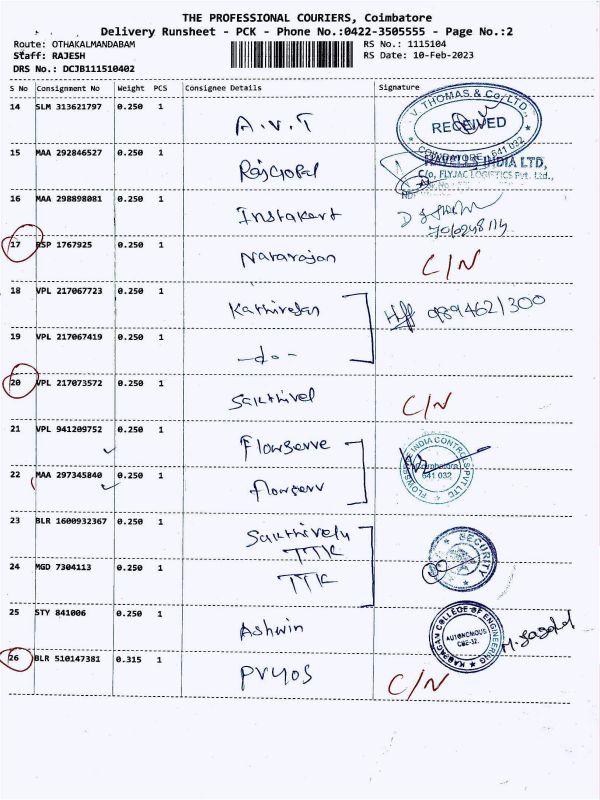 THE PROFESSIONAL COURIERS, Coimbatore
Delivery Runsheet - PCK - Phone No.:0422-3505555 - Page No.:2
Route: OTHAKALMANDABAM RS No.: 1115104
Staff: RAJESH RS Date: 10-Feb-2023
DRS No.: DCJB111510402
S No Consignment No Weight PCS Consignee Details Signature
14 SLM 313621797 0.250 1 A.V.T V. THOMAS & Co LTD., RECEIVED COIMBATORE 641 032
15 MAA 292846527 0.250 1 Rajgopal HAVELLS INDIA LTD,
C/o, FLYJAC LOGISTICS Pvt. Ltd.,
16 MAA 298898081 0.250 1 Instakart
17 RSP 1767925 0.250 1 Natarajan C/N
18 VPL 217067723 0.250 1 Kathiresan 9894621300
19 VPL 217067419 0.250 1 -do-
20 VPL 217073572 0.250 1 Sakthivel C/N
21 VPL 941209752 0.250 1 Flowserve FLOWSERVE INDIA CONTROLS PVT LTD Coimbatore 641 032
22 MAA 297345840 0.250 1 flowserv
23 BLR 1600932367 0.250 1 Sakthivelu
TTK SECURITY
24 MGD 7304113 0.250 1 TTK
25 STY 841006 0.250 1 Ashwin KARPAGAM COLLEGE OF ENGINEERING AUTONOMOUS CBE-32.
26 BLR 510147381 0.315 1 C/N